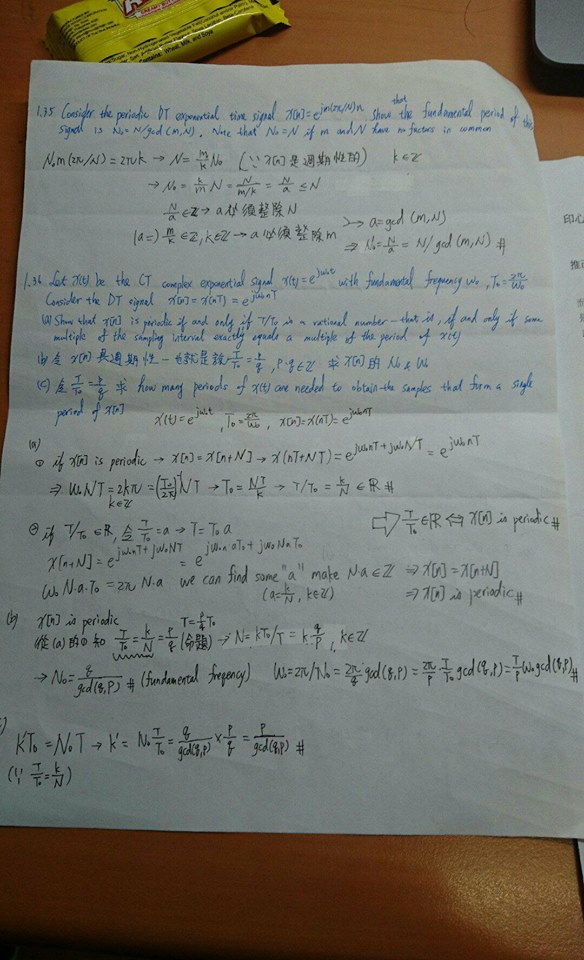 Contains: Wheat, Milk, and Soy
1.35 Consider the periodic DT exponential time signal x[n]=e^{jm(2π/N)n} show that the fundamental period of this
signal is N₀=N/gcd(m,N). Note that N₀=N if m and N have no factors in common
N₀m(2π/N)=2πk → N=m/k N₀ (∵x[n]是週期性的) k∈ℤ
→ N₀=k/m N=N/(m/k)=N/a≤N
N/a∈ℤ→a必須整除N
(a=)m/k∈ℤ,k∈ℤ→a必須整除m
→ a=gcd(m,N)
⇒ N₀=N/a=N/gcd(m,N) #
1.36 Let x(t) be the CT complex exponential signal x(t)=e^{jω₀t} with fundamental frequency ω₀, T₀=2π/ω₀
Consider the DT signal x[n]=x(nT)=e^{jω₀nT}
(a) Show that x[n] is periodic if and only if T/T₀ is a rational number – that is, if and only if some
multiple of the sampling interval exactly equals a multiple of the period of x(t)
(b) 令x[n]是週期性–也就是說T/T₀=p/q, p,q∈ℤ 求x[n]的N₀&ω₀
(c) 令T/T₀=p/q 求 how many periods of x(t) are needed to obtain the samples that form a single
period of x[n]
x(t)=e^{jω₀t}, T₀=2π/ω₀, x[n]=x(nT)=e^{jω₀nT}
(a)
① if x[n] is periodic → x[n]=x[n+N] → x(nT+NT)=e^{jω₀nT+jω₀NT}=e^{jω₀nT}
⇒ ω₀NT=2kπ=(T₀/2π)^{-1}NT → T₀=NT/k → T/T₀=k/N∈ℝ #
k∈ℤ
② if T/T₀∈ℝ, 令T/T₀=a → T=T₀a
⇨ T/T₀∈ℝ ⇔ x[n] is periodic #
x[n+N]=e^{jω₀nT+jω₀NT}=e^{jω₀naT₀+jω₀NaT₀}
ω₀N·a·T₀=2πN·a we can find some "a" make N·a∈ℤ ⇒x[n]=x[n+N]
(a=k/N, k∈ℤ) ⇒x[n] is periodic #
(b) x[n] is periodic T=p/q T₀
從(a)的①知 T/T₀=k/N=p/q (命題) → N=kT₀/T=k·q/p, k∈ℤ
→ N₀=q/gcd(q,p) # (fundamental freqency) ω₀=2π/N₀=2π/q gcd(q,p)=2π/p T/T₀ gcd(q,p)=T/p ω₀gcd(q,p) #
)
k'T₀=N₀T → k'=N₀T/T₀=q/gcd(q,p)×p/q=p/gcd(q,p) #
(∵T/T₀=k/N)